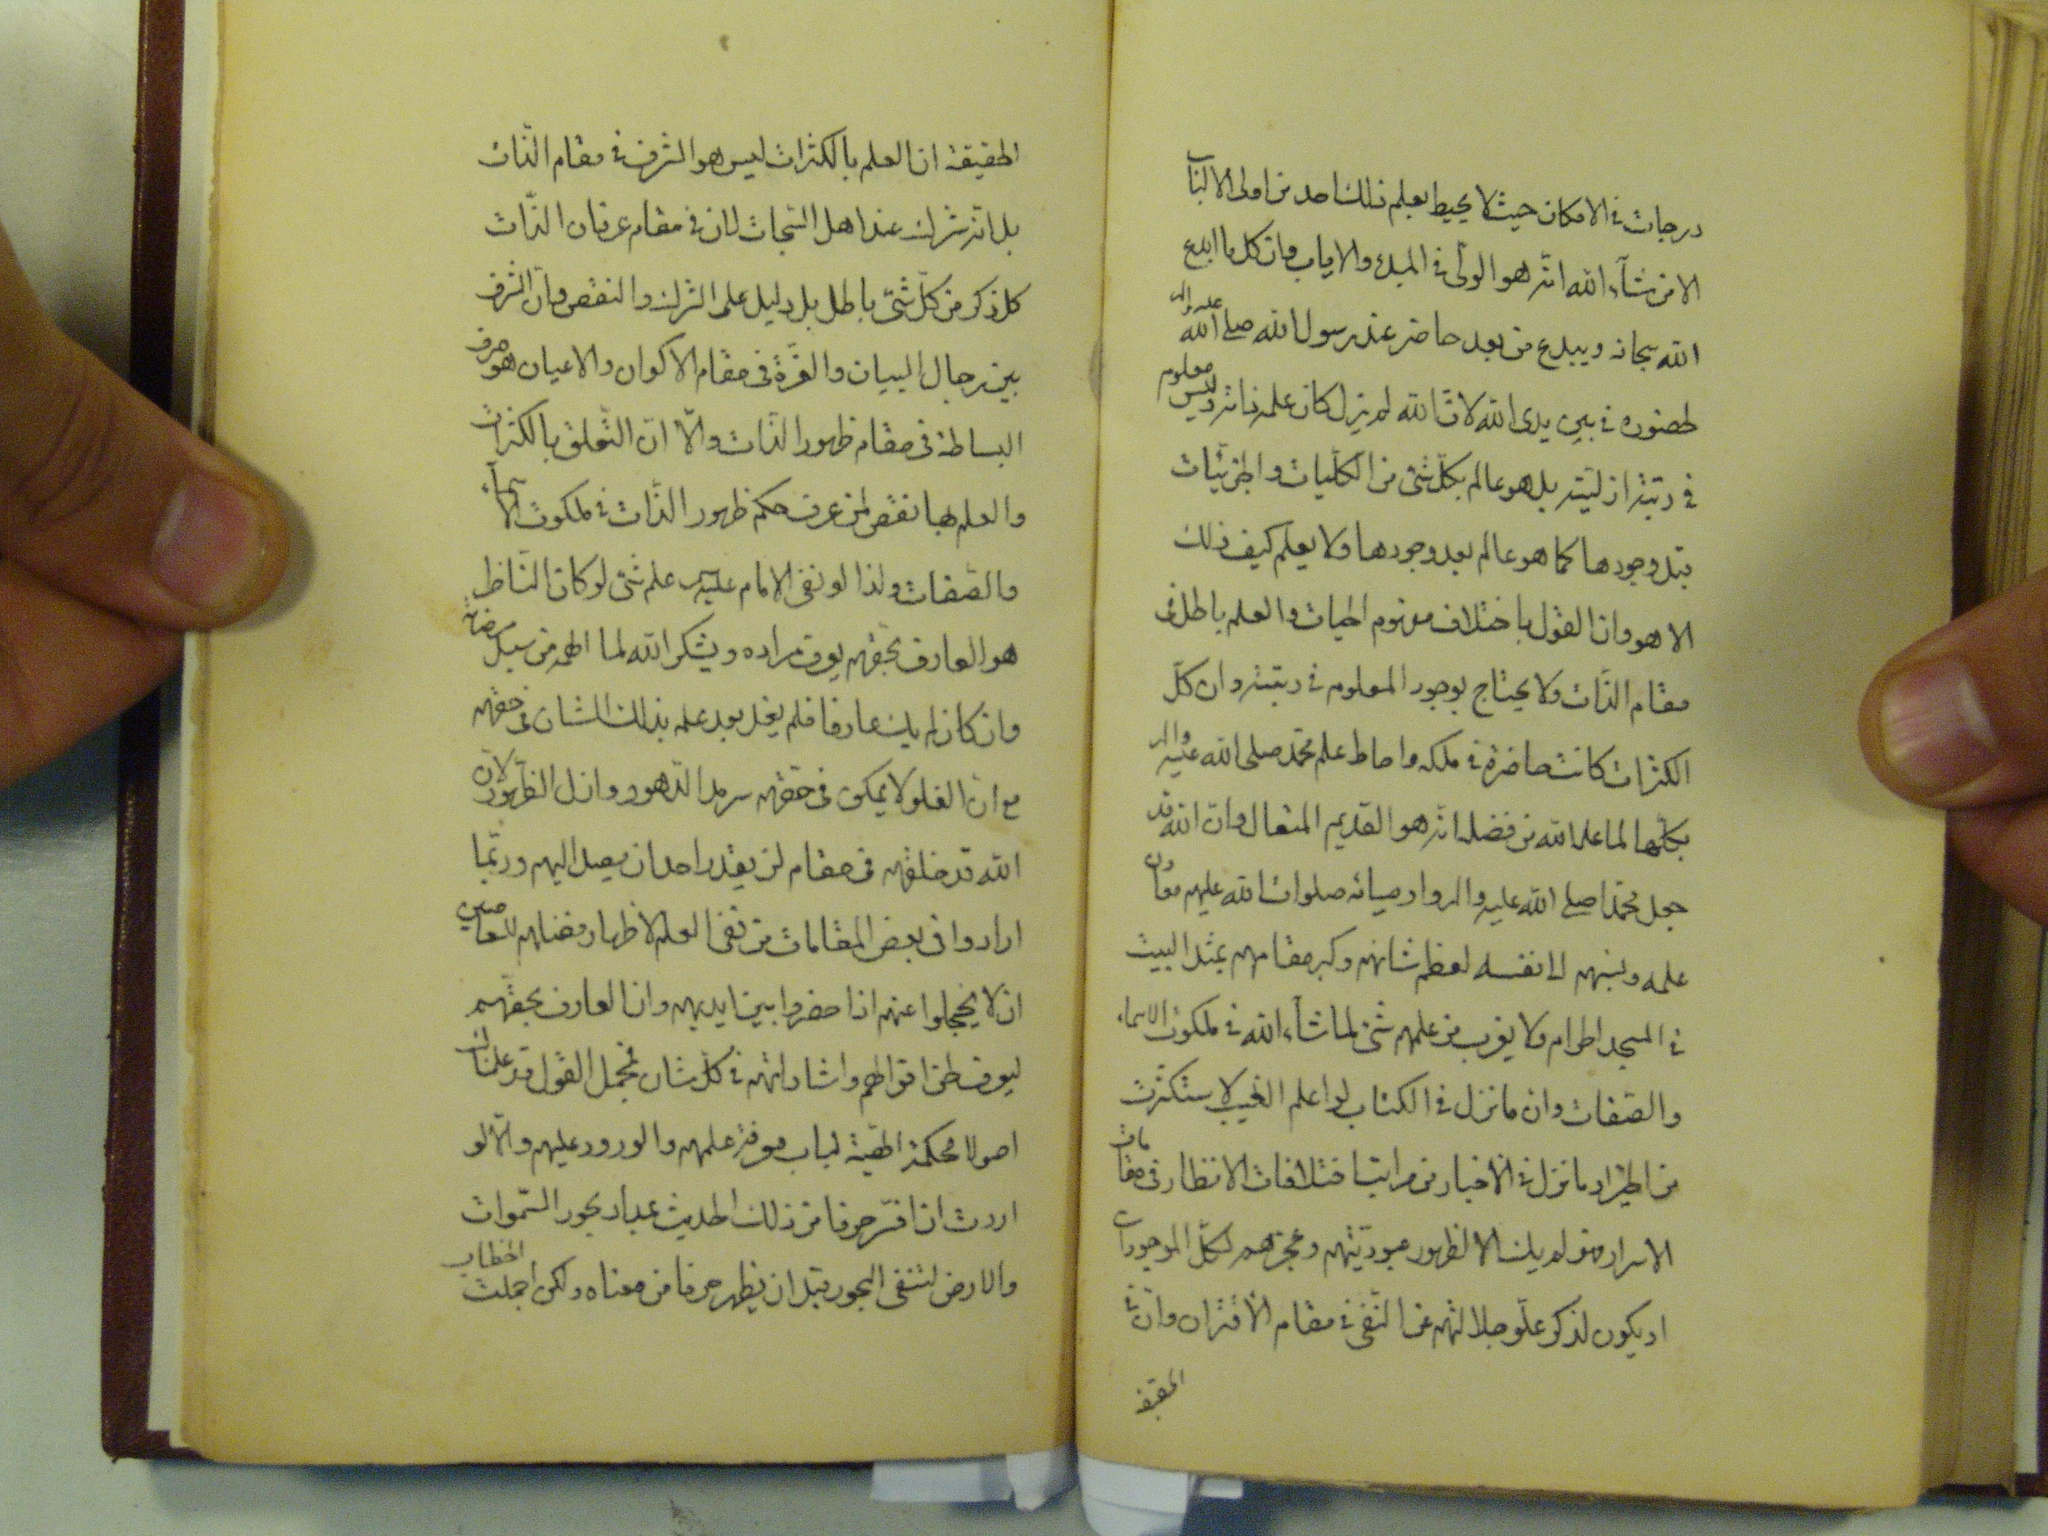 درجات في الامكان حيث لا يحيط بعلم ذلك احد من اولى الالباب
الا من شآء الله انه هو الولى في المبدء والاياب وان كل ما ابدع
الله سبحانه ويبدع من بعد حاضر عند رسول الله صلى الله عليه واله
لحضوره في بين يدى الله لان الله لم يزل كان علمه ذاته وليس معلوم
في رتبة ازليته بل هو عالم بكل شئ من الكليات والجزئيات
قبل وجودها كما هو عالم بعد وجودها ولا يعلم كيف ذلك
الا هو وان القول باختلاف مفهوم الحيات والعلم باطل في
مقام الذات ولا يحتاج بوجود المعلوم في رتبته وان كل
الكثرات كانت حاضرة في ملكه واحاط علم محمد صلى الله عليه واله
بكلها لما علمه الله من فضله انه هو القديم المتعال وان الله قد
جعل محمدا صلى الله عليه واله واوصيائه صلوات الله عليهم معادن
علمه ونسبهم الى نفسه لعظم شانهم وكبر مقامهم بمثل البيت
في المسجد الحرام ولا يعزب من علمهم شئ لما شآء الله في ملكوت الاسماء
والصفات وان ما نزل في الكتاب لو اعلم الغيب لاستكثرت
من الخير او ما نزل في الاخبار من مراتب اختلافات الانظار في مقامات
الاسرار فهو لم يك الا لظهور عبوديتهم وعجزهم لكل الموجودات
او يكون لذكر علو جلالتهم عن النفى في مقام الاقتران وان في
الحقيقة
الحقيقة ان العلم بالكثرات ليس هو الشرف في مقام الذات
بل انه شرك عند اهل السبحات لان في مقام عرفان الذات
كل ذكر من كل شئ باطل بل دليل على الشرك والنقص وان الشرف
بين رجال البيان والعزة في مقام الاكوان والاعيان هو صرف
البساطة في مقام ظهور الذات والا ان التعلق بالكثرات
والعلم بها نقص لمن عرف حكم ظهور الذات في ملكوت الاسماء
والصفات ولذا لو نفى الامام عليه السلام علم شئ لو كان الناظر
هو العارف بحقهم يعرف مراده ويشكر الله لما الهمه من سبيل مرضاته
وان كان لم يك عارفا فلم يغل بعد علمه بذلك الشان في حقهم
مع ان الغلو لا يمكن في حقهم سرمد الدهور وازل الظهور لان
الله قد خلقهم في مقام لن يقدر احد ان يصل اليهم وربما
ارادوا في بعض المقامات من نفى العلم لاظهار فضلهم للعاصين
ان لا يخجلوا عنهم اذا حضروا بين ايديهم وان العارف بحقهم
ليعرف لحن اقوالهم واشاراتهم في كل شان فمجمل القول قد علمناك
اصولا محكمة الهية لباب معرفة علمهم والورود عليهم والا لو
اردت ان افسر حرفا من ذلك الحديث بمداد بحور السموات
والارض لتنفى البحور قبل ان يظهر حرفا من معناه ولكن اجملت الخطاب